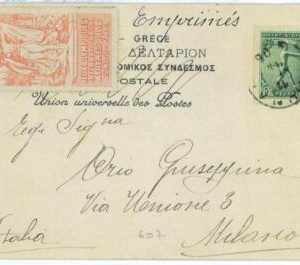 Emprimés
GRECE
ΔΕΛΤΑΡΙΟΝ
ΟΜΙΚΟΣ ΣΥΝΔΕΣΜΟΣ
OSTALE
Union universelle des Postes
Egr Signa
Orio Giuseppina
Via Unione 3
607
Italia
Milano